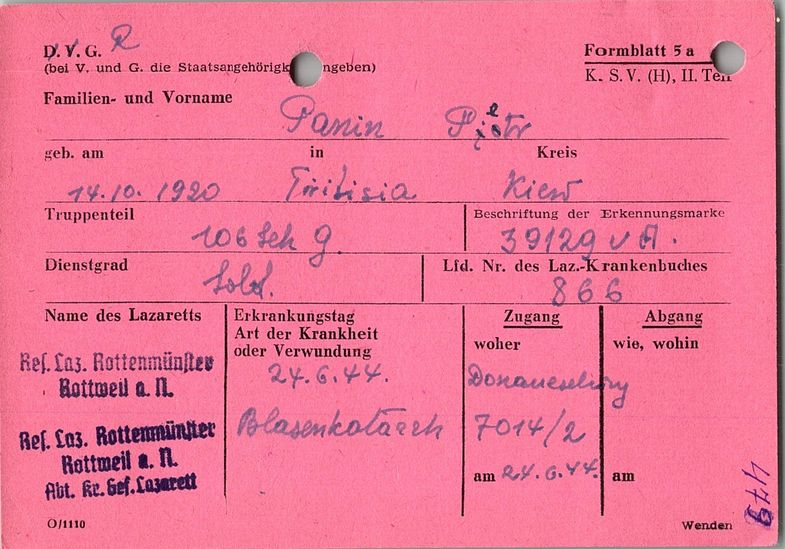 D. V. G. R
(bei V. und G. die Staatsangehörigk ngeben)
Formblatt 5 a
K. S. V. (H), II. Teil
Familien- und Vorname
Panin Pietr
geb. am in Kreis
14.10.1920 Kiew
Truppenteil
106 Sch
Beschriftung der Erkennungsmarke
39129 V A.
Dienstgrad
Sold.
Lfd. Nr. des Laz.-Krankenbuches
866
Name des Lazaretts
Ref. Laz. Rottenmünster
Rottweil a. N.
Ref. Laz. Rottenmünster
Rottweil a. N.
Abt. Kr. Gef. Lazarett
Erkrankungstag
Art der Krankheit
oder Verwundung
24.6.44.
Blasenkatarrh
Zugang
woher
Donaueschling
7014/2
am 24.6.44.
Abgang
wie, wohin
am
O/1110
Wenden
479